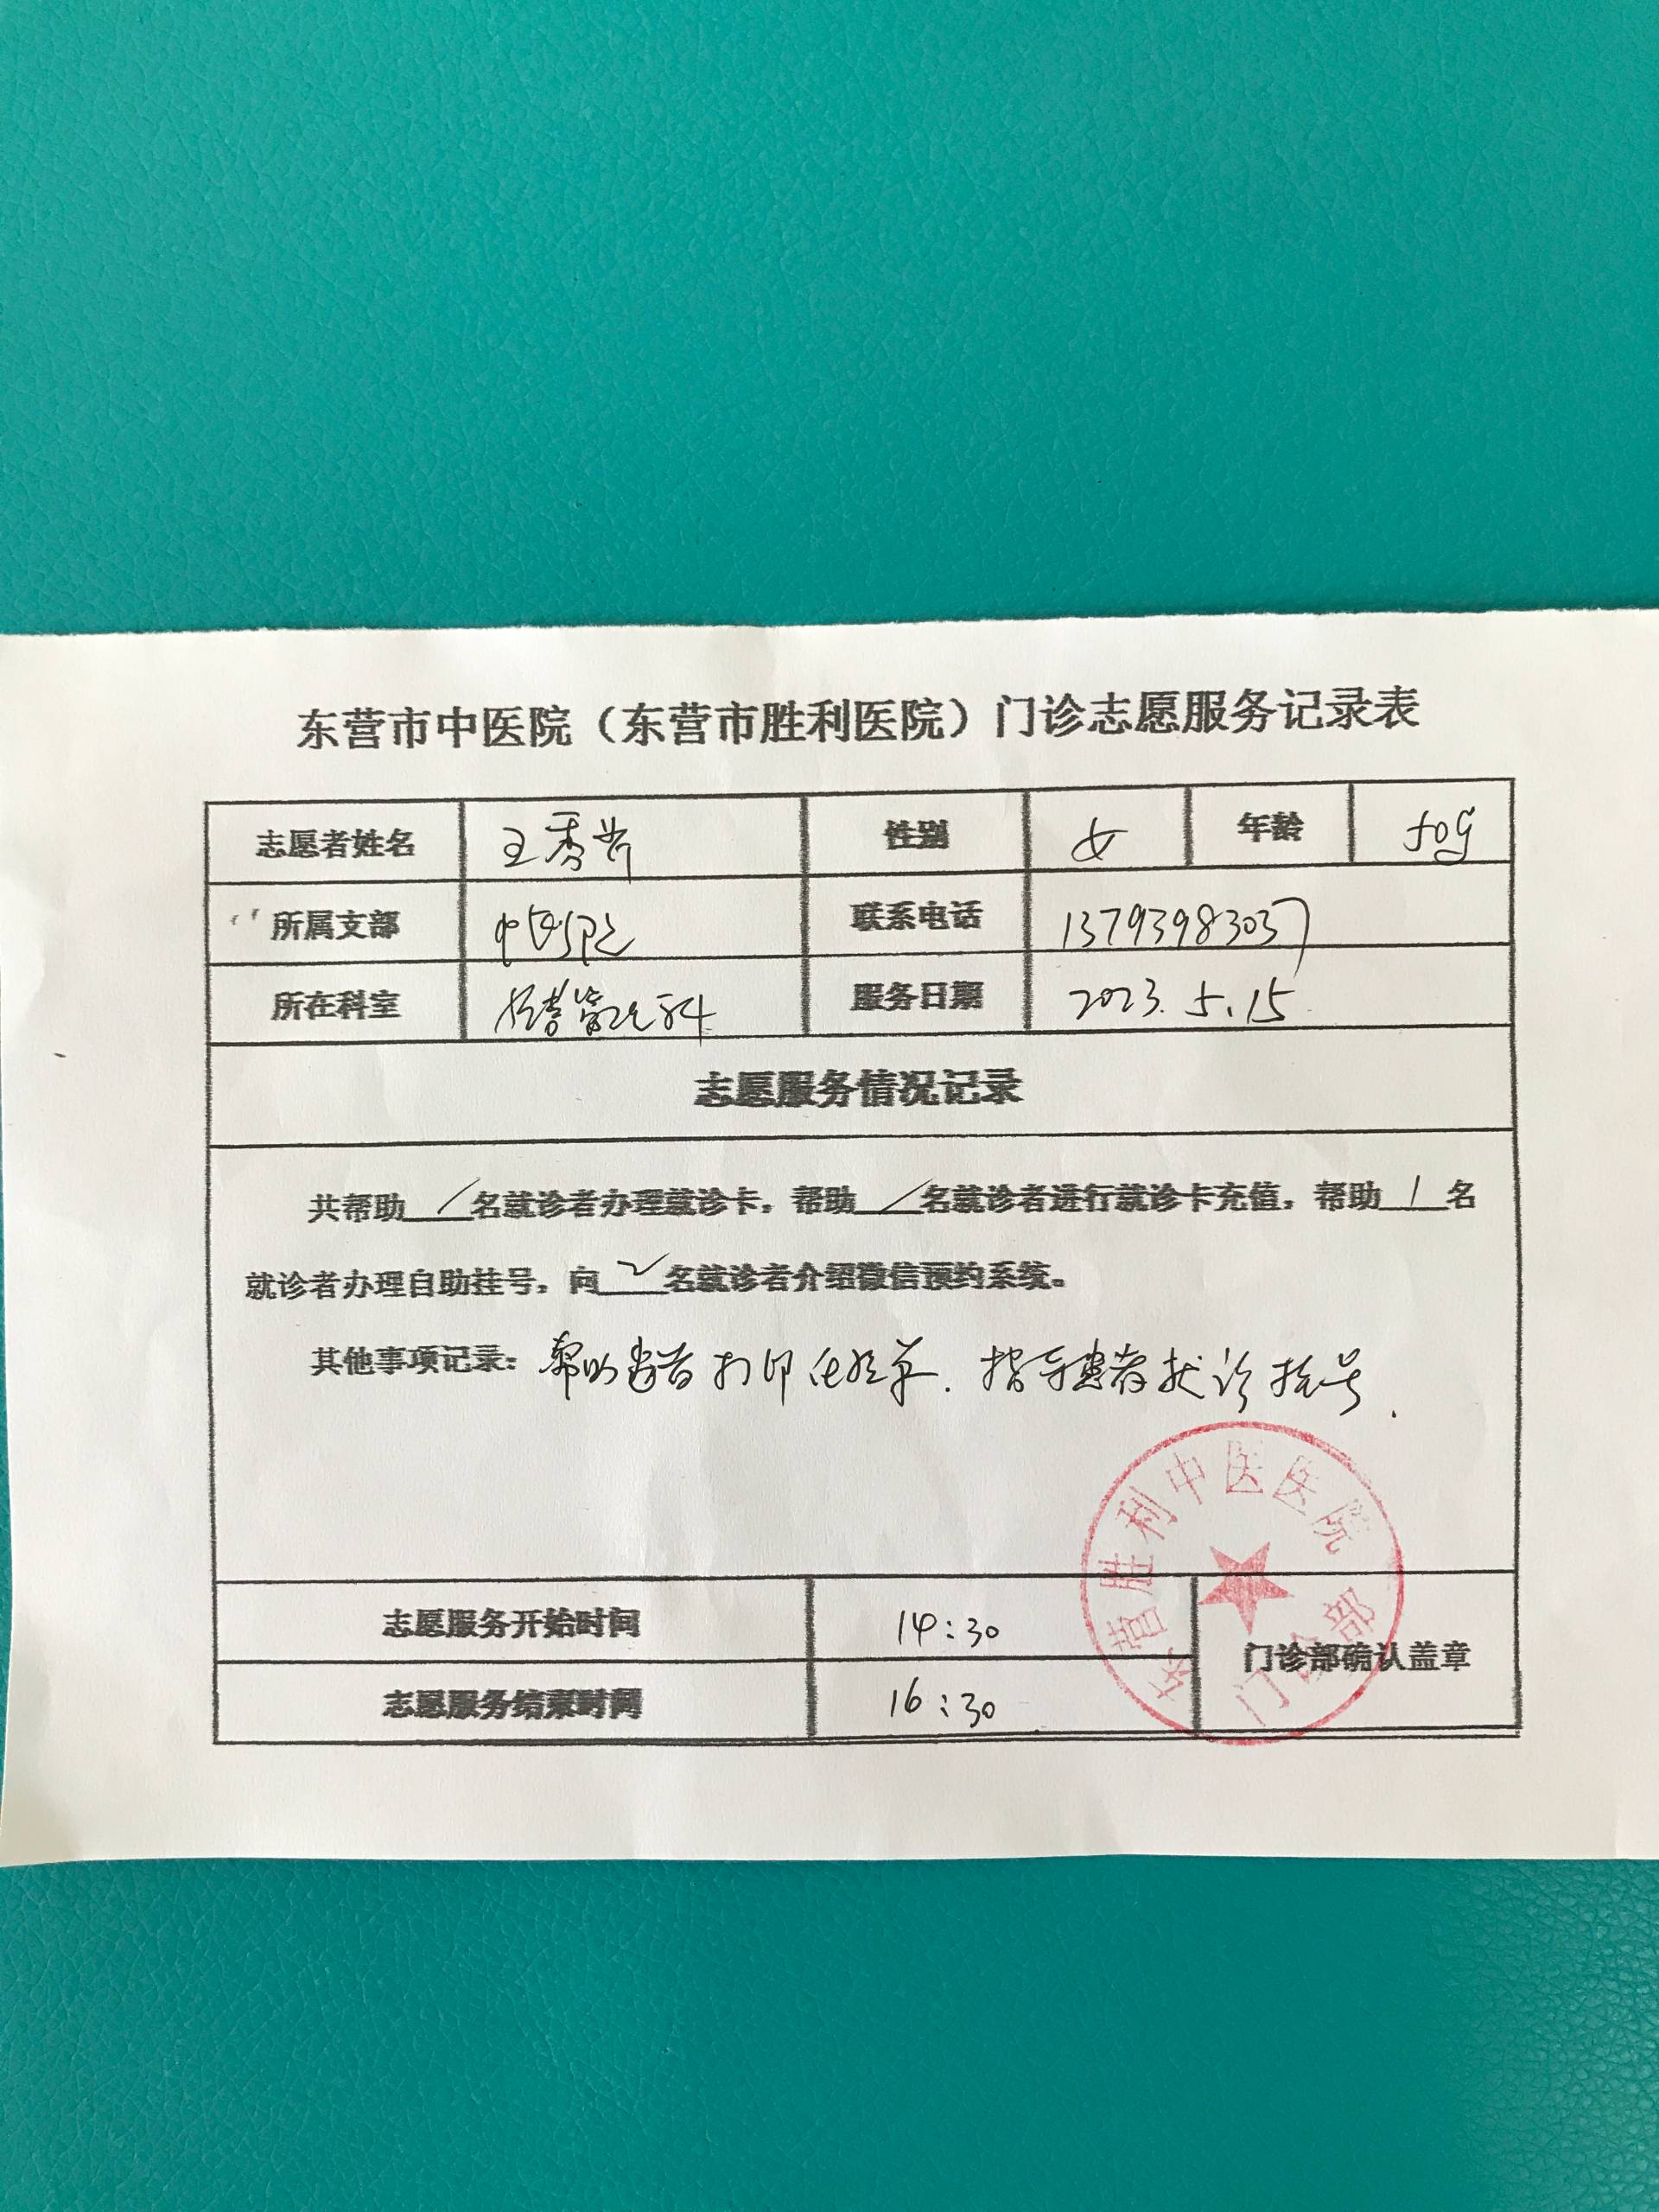 东营市中医院（东营市胜利医院）门诊志愿服务记录表
志愿者姓名 王秀 性别 女 年龄 50岁
所属支部 联系电话 13793983037
所在科室 科 服务日期 2023.5.15
志愿服务情况记录
共帮助 / 名就诊者办理就诊卡，帮助 / 名就诊者进行就诊卡充值，帮助 1 名
就诊者办理自助挂号，向 2 名就诊者介绍微信预约系统。
其他事项记录：帮助患者打印化验单．指导患者就诊挂号．
志愿服务开始时间 14:30
门诊部确认盖章
志愿服务结束时间 16:30
东营胜利中医医院
门诊部